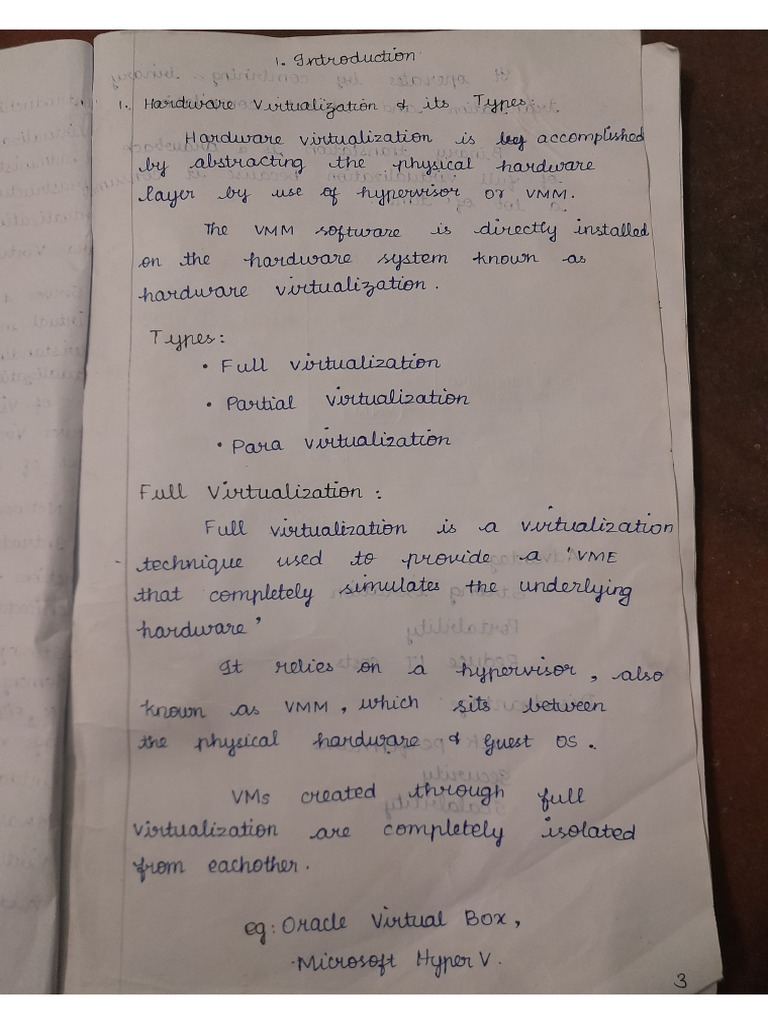 1. Introduction
1. Hardware Virtualization & its Types:
Hardware virtualization is accomplished
by abstracting the physical hardware
layer by use of hypervisor or VMM.
The VMM software is directly installed
on the hardware system known as
hardware virtualization.
Types:
• Full virtualization
• Partial virtualization
• Para virtualization
Full Virtualization:
Full virtualization is a virtualization
technique used to provide a 'VME
that completely simulates the underlying
hardware'
It relies on a hypervisor, also
known as VMM, which sits between
the physical hardware & Guest OS.
VMs created through full
virtualization are completely isolated
from eachother.
eg: Oracle Virtual Box,
Microsoft Hyper V.
3